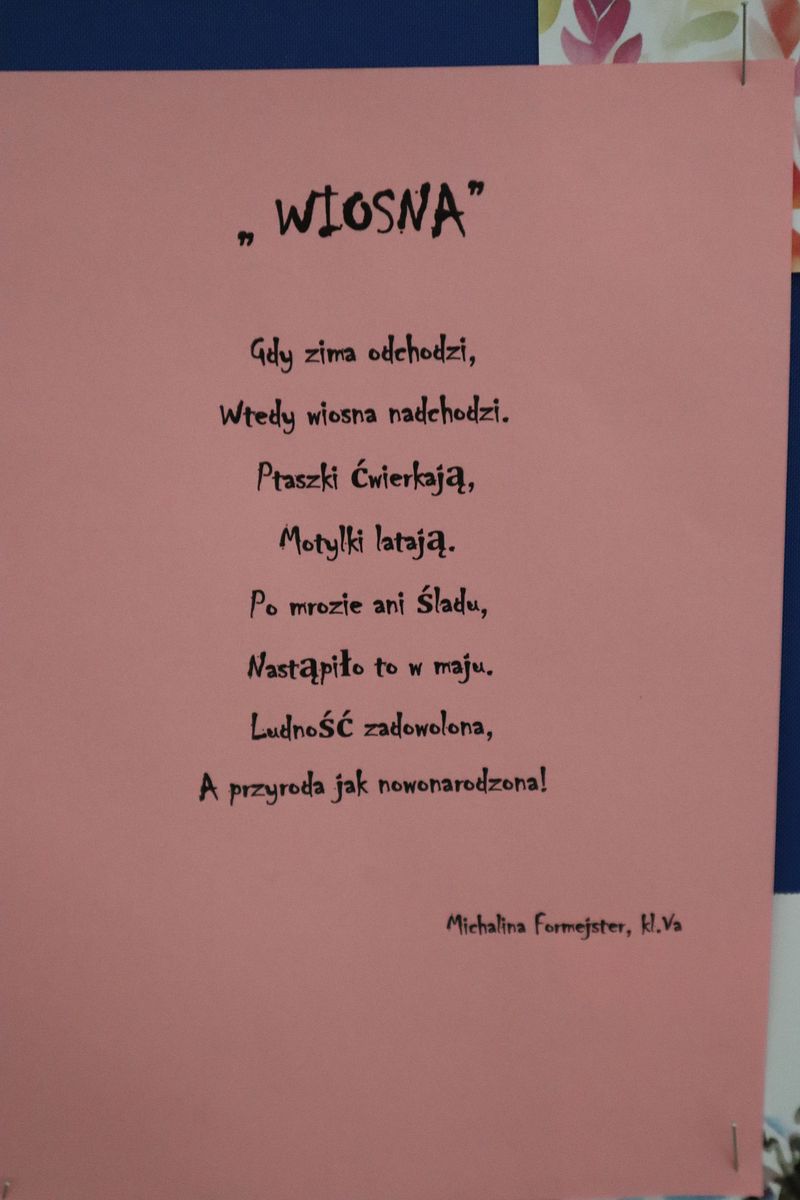 „ WIOSNA”
Gdy zima odchodzi,
Wtedy wiosna nadchodzi.
Ptaszki ćwierkają,
Motylki latają.
Po mrozie ani śladu,
Nastąpiło to w maju.
Ludność zadowolona,
A przyroda jak nowonarodzona!
Michalina Formejster, kl.Va